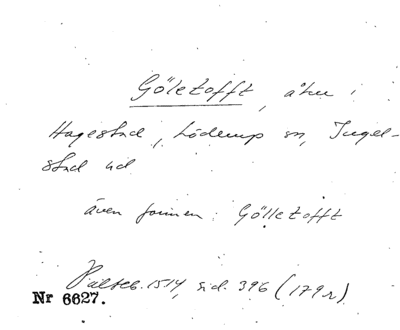 Göletofft, åker i
Hagestad, Löderup sn, Ingel-
stad hd
även formen: Gölletofft
Palteb. 1514, sid. 396 (179r)
Nr 6627.